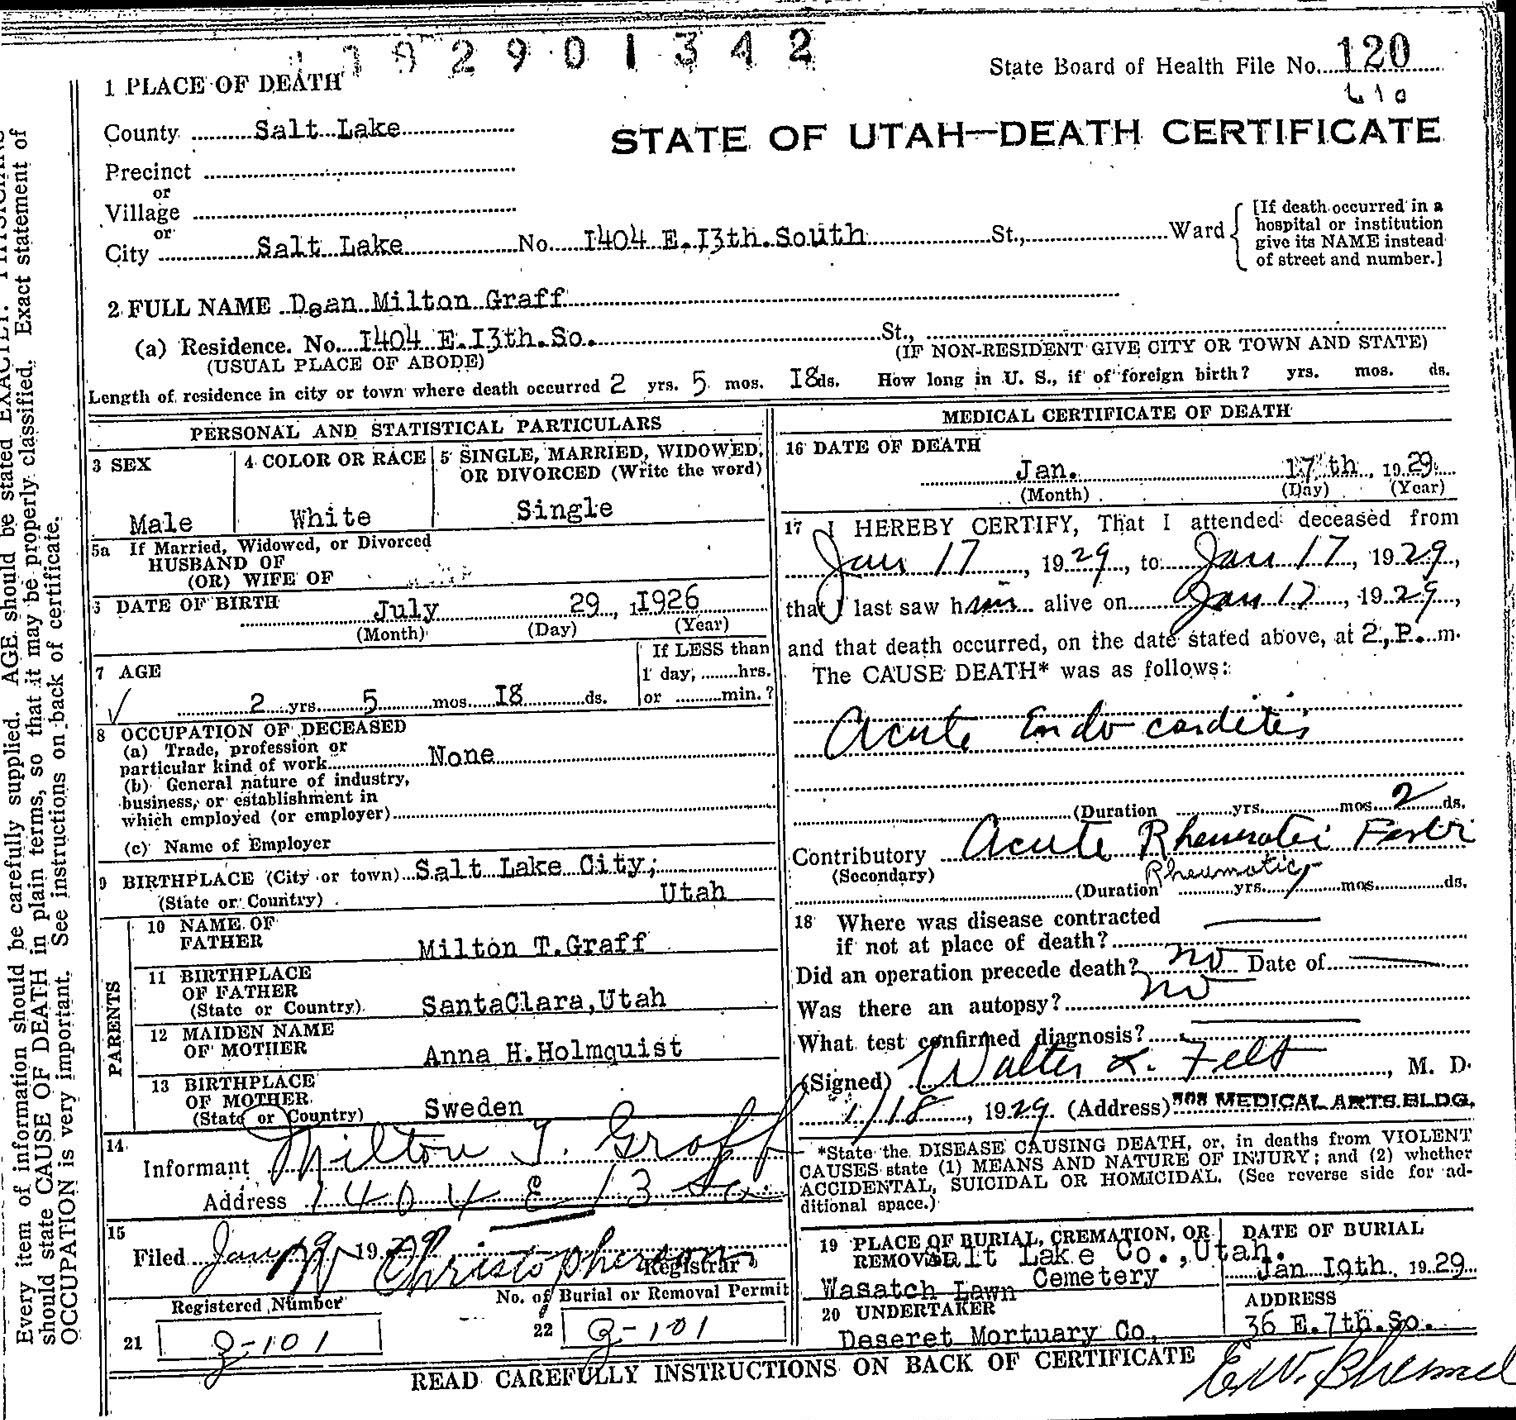 192901342
State Board of Health File No. 120
610
1 PLACE OF DEATH
County Salt Lake
STATE OF UTAH—DEATH CERTIFICATE
Precinct
or
Village
or
City Salt Lake No. I404 E. I3th. South St., Ward
[If death occurred in a
hospital or institution
give its NAME instead
of street and number.]
2 FULL NAME Dean Milton Graff
(a) Residence. No. I404 E. I3th. So. St.,
(USUAL PLACE OF ABODE) (IF NON-RESIDENT GIVE CITY OR TOWN AND STATE)
Length of residence in city or town where death occurred 2 yrs. 5 mos. I8 ds. How long in U. S., if of foreign birth? yrs. mos. ds.
PERSONAL AND STATISTICAL PARTICULARS
3 SEX
Male
4 COLOR OR RACE
White
5 SINGLE, MARRIED, WIDOWED,
OR DIVORCED (Write the word)
Single
5a If Married, Widowed, or Divorced
HUSBAND OF
(OR) WIFE OF
6 DATE OF BIRTH July 29, 1I926
(Month) (Day) (Year)
7 AGE
2 yrs. 5 mos. I8 ds.
If LESS than
1 day, hrs.
or min.?
8 OCCUPATION OF DECEASED
(a) Trade, profession or
particular kind of work None
(b) General nature of industry,
business, or establishment in
which employed (or employer)
(c) Name of Employer
9 BIRTHPLACE (City or town) Salt Lake City,
(State or Country) Utah
PARENTS
10 NAME OF
FATHER Milton T. Graff
11 BIRTHPLACE
OF FATHER
(State or Country) SantaClara, Utah
12 MAIDEN NAME
OF MOTHER Anna H. Holmquist
13 BIRTHPLACE
OF MOTHER
(State or Country) Sweden
14
Informant Milton T. Graff
Address 1404 E 13 So.
15
Filed Jan 19 1929 Christopherson
Registrar
Registered Number
21 G-101
No. of Burial or Removal Permit
22 G-101
MEDICAL CERTIFICATE OF DEATH
16 DATE OF DEATH
Jan. 17th, 1929.
(Month) (Day) (Year)
17 I HEREBY CERTIFY, That I attended deceased from
Jan 17, 1929, to Jan 17, 1929,
that I last saw him alive on Jan 17, 1929,
and that death occurred, on the date stated above, at 2, P. m.
The CAUSE DEATH* was as follows:
Acute Endocarditis
(Duration yrs. mos. 2 ds.
Contributory Acute Rheumatic Fever
(Secondary) Rheumatic
(Duration yrs. mos. ds.
18 Where was disease contracted
if not at place of death?
Did an operation precede death? no Date of
Was there an autopsy? no
What test confirmed diagnosis?
(Signed) Walter L. Felt, M. D.
1/18, 1929 (Address) 508 MEDICAL ARTS BLDG.
*State the DISEASE CAUSING DEATH, or, in deaths from VIOLENT
CAUSES state (1) MEANS AND NATURE OF INJURY; and (2) whether
ACCIDENTAL, SUICIDAL OR HOMICIDAL. (See reverse side for ad-
ditional space.)
19 PLACE OF BURIAL, CREMATION, OR
REMOVAL Salt Lake Co., Utah.
Wasatch Lawn Cemetery
DATE OF BURIAL
Jan I9th. 1929
20 UNDERTAKER
Deseret Mortuary Co.,
ADDRESS
36 E. 7th. So.
READ CAREFULLY INSTRUCTIONS ON BACK OF CERTIFICATE
E.W.
Every item of information should be carefully supplied. AGE should be stated EXACTLY. PHYSICIANS
should state CAUSE OF DEATH in plain terms, so that it may be properly classified. Exact statement of
OCCUPATION is very important. See instructions on back of certificate.